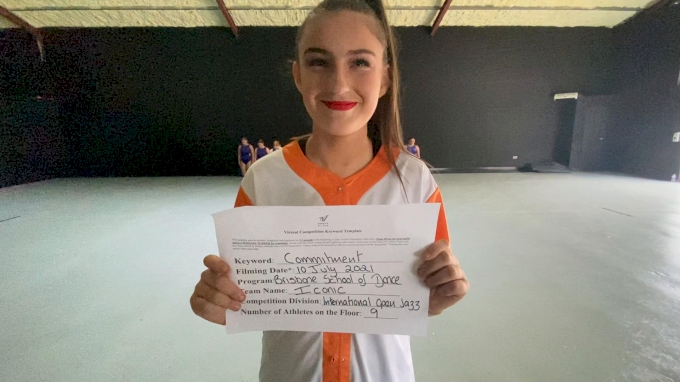 Virtual Competition Keyword Template
Keyword: Commitment
Filming Date*: 10 July 2021
Program: Brisbane School of Dance
Team Name: Iconic
Competition Division: International Open Jazz
Number of Athletes on the Floor: 9